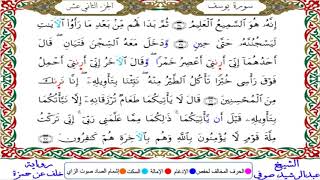 سورة يوسف
الجزء الثاني عشر
إِنَّهُۥ هُوَ ٱلسَّمِيعُ ٱلْعَلِيمُ ثُمَّ بَدَا لَهُم مِّنۢ بَعْدِ مَا رَأَوُا۟ ٱلْءَايَٰتِ
لَيَسْجُنُنَّهُۥ حَتَّىٰ حِينٍ وَدَخَلَ مَعَهُ ٱلسِّجْنَ فَتَيَانِ قَالَ
أَحَدُهُمَآ إِنِّىٓ أَرَىٰنِىٓ أَعْصِرُ خَمْرًا وَقَالَ ٱلْءَاخَرُ إِنِّىٓ أَرَىٰنِىٓ أَحْمِلُ
فَوْقَ رَأْسِى خُبْزًا تَأْكُلُ ٱلطَّيْرُ مِنْهُ نَبِّئْنَا بِتَأْوِيلِهِۦٓ إِنَّا نَرَىٰكَ
مِنَ ٱلْمُحْسِنِينَ قَالَ لَا يَأْتِيكُمَا طَعَامٌ تُرْزَقَانِهِۦٓ إِلَّا نَبَّأْتُكُمَا
بِتَأْوِيلِهِۦ قَبْلَ أَن يَأْتِيَكُمَا ذَٰلِكُمَا مِمَّا عَلَّمَنِى رَبِّىٓ إِنِّى تَرَكْتُ
مِلَّةَ قَوْمٍ لَّا يُؤْمِنُونَ بِٱللَّهِ وَهُم بِٱلْءَاخِرَةِ هُمْ كَٰفِرُونَ
الشيخ
عبدالرشيد صوفي
الحرف المخالف لحفص
الإدغام
الإمالة
السكت
إشمام الصاد صوت الزاي
رواية
خلف عن حمزة